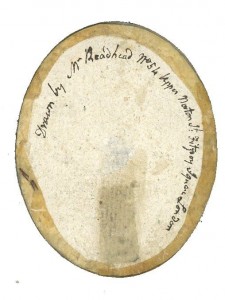 Drawn by Mr Readhead No 54 Upper Norton St Fitzroy Square London